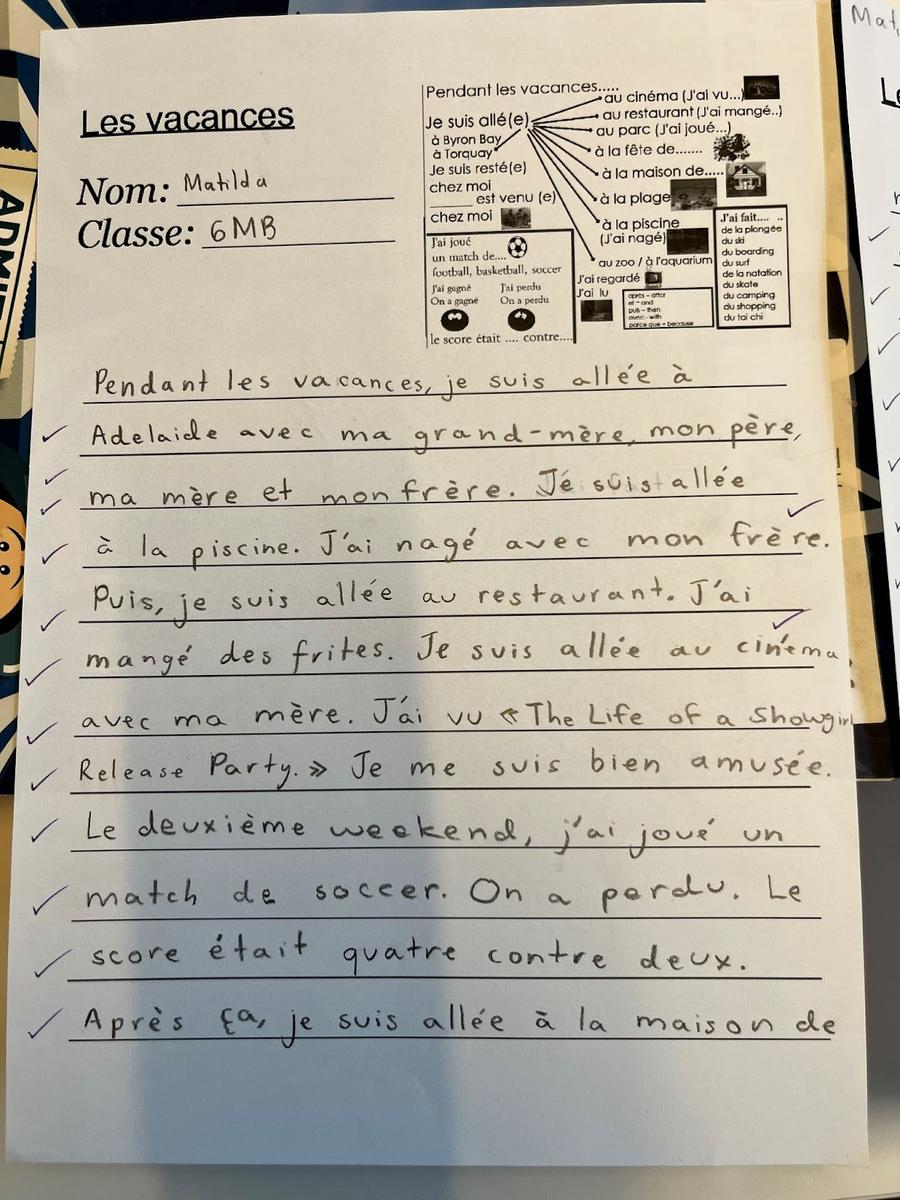 Les vacances
Nom: Matilda
Classe: 6MB
Pendant les vacances.....
au cinéma (J'ai vu...)
Je suis allé(e)
au restaurant (J'ai mangé..)
à Byron Bay
au parc (J'ai joué...)
à Torquay
à la fête de.......
Je suis resté(e)
chez moi
à la maison de.....
______ est venu (e)
chez moi
à la plage
à la piscine
(J'ai nagé)
au zoo / à l'aquarium
J'ai regardé
J'ai lu
après - after
et - and
puis - then
avec - with
parce que - because
J'ai fait.... ..
de la plongée
du ski
du boarding
du surf
de la natation
du skate
du camping
du shopping
du tai chi
J'ai joué
un match de....
football, basketball, soccer
J'ai gagné J'ai perdu
On a gagné On a perdu
le score était .... contre....
Pendant les vacances, je suis allée à
Adelaide avec ma grand-mère, mon père,
ma mère et mon frère. Je suis allée
à la piscine. J'ai nagé avec mon frère.
Puis, je suis allée au restaurant. J'ai
mangé des frites. Je suis allée au cinéma
avec ma mère. J'ai vu « The Life of a Showgirl
Release Party. » Je me suis bien amusée.
Le deuxième weekend, j'ai joué un
match de soccer. On a perdu. Le
score était quatre contre deux.
Après ça, je suis allée à la maison de